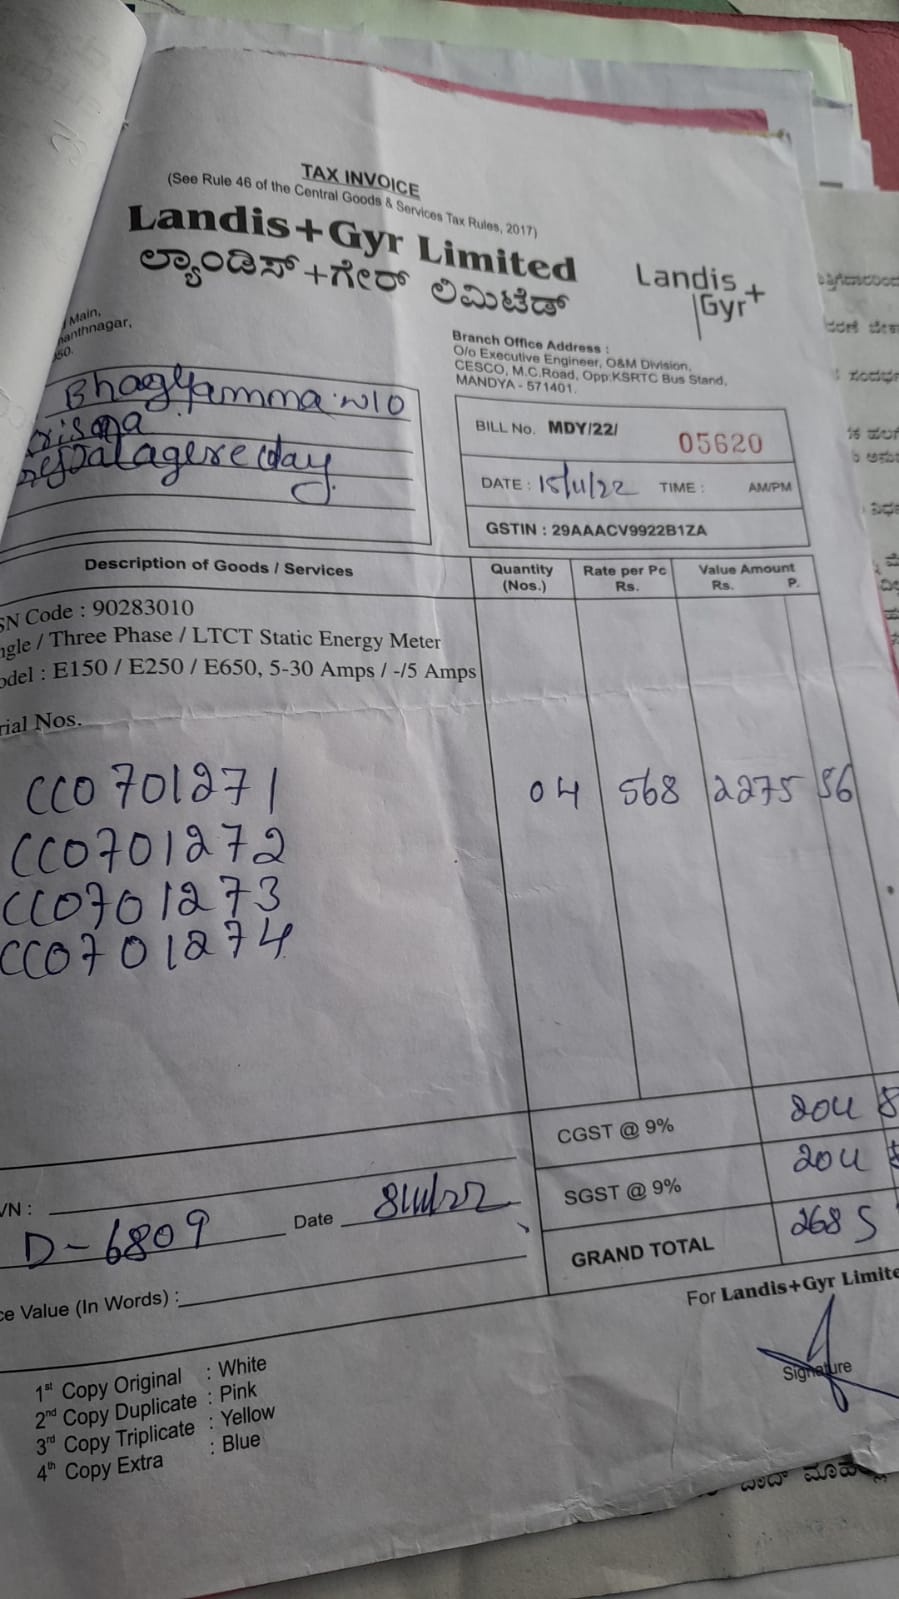 TAX INVOICE
(See Rule 46 of the Central Goods & Services Tax Rules, 2017)
Landis+Gyr Limited
ಲ್ಯಾಂಡಿಸ್+ಗೇರ್ ಲಿಮಿಟೆಡ್
Landis
Gyr+
Main,
anthnagar,
Branch Office Address :
O/o Executive Engineer, O&M Division,
CESCO, M.C.Road, Opp:KSRTC Bus Stand,
MANDYA - 571401.
Bhagyamma w/o
BILL No. MDY/22/ 05620
DATE : 15/11/22 TIME : AM/PM
GSTIN : 29AAACV9922B1ZA
Description of Goods / Services Quantity (Nos.) Rate per Pc Rs. Value Amount Rs. P.
SN Code : 90283010
ngle / Three Phase / LTCT Static Energy Meter
odel : E150 / E250 / E650, 5-30 Amps / -/5 Amps
rial Nos.
CC0701271 04 568 2275 56
CC0701272
CC0701273
CC0701274
CGST @ 9% 204 8
SGST @ 9% 204
GRAND TOTAL 2685
VN :
D-6809 Date 8/11/22
ce Value (In Words) :
For Landis+Gyr Limite
Signature
1st Copy Original : White
2nd Copy Duplicate : Pink
3rd Copy Triplicate : Yellow
4th Copy Extra : Blue